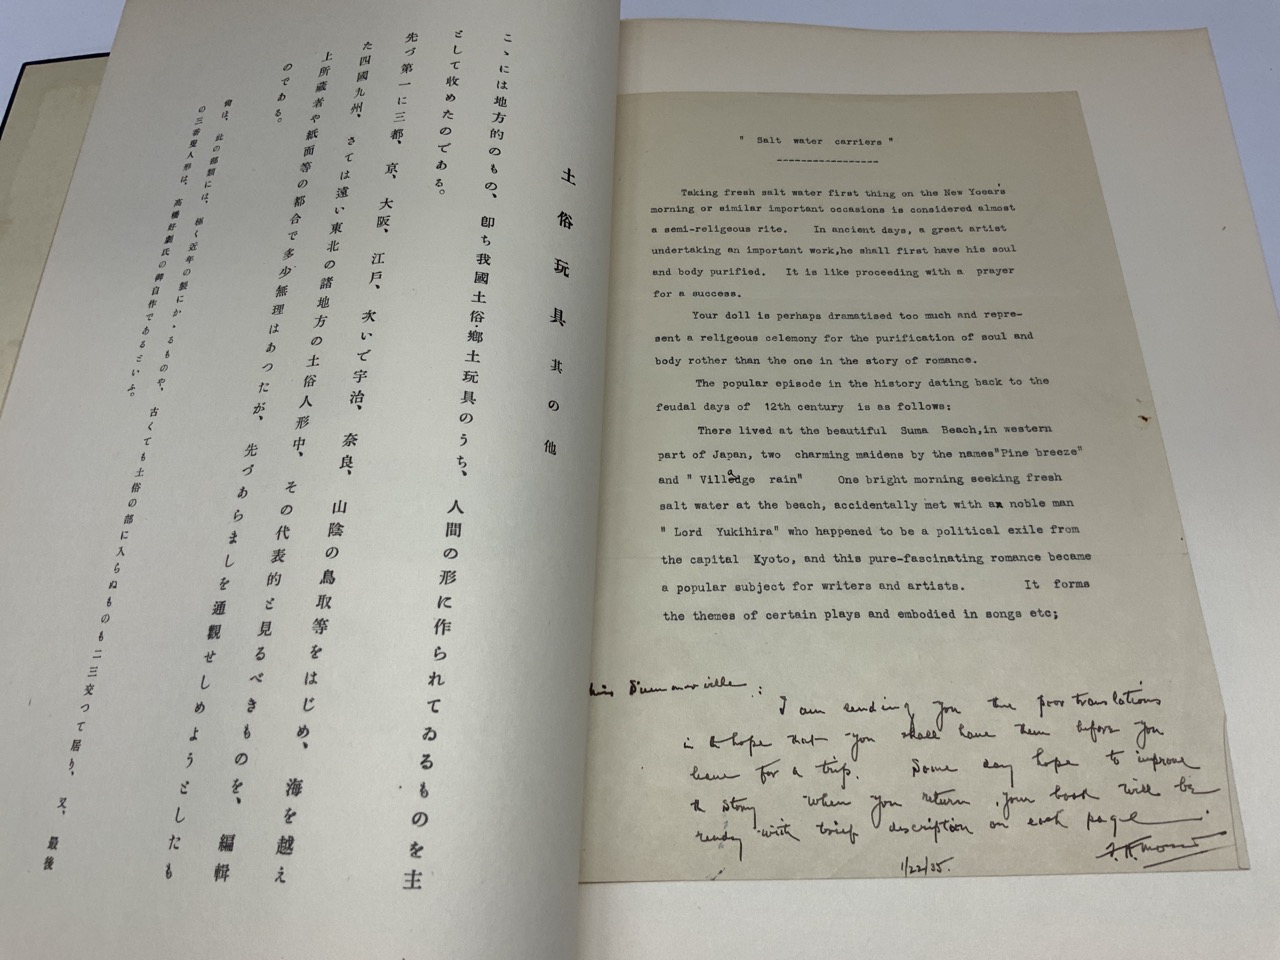 土俗玩具其の他
こゝには地方的のもの、卽ち我國土俗・鄕土玩具のうち、人間の形に作られてゐるものを主
として收めたのである。
先づ第一に三都、京、大阪、江戶、次いで宇治、奈良、山陰の鳥取等をはじめ、海を越え
た四國九州、さては遠い東北の諸地方の土俗人形中、その代表的と見るべきものを、編輯
上所藏者や紙面等の都合で多少無理はあつたが、先づあらましを通觀せしめようとしたも
のである。
尙ほ、此の部類には、極く近年の製にかゝるものや、古くても土俗の部に入らぬものも二三交つて居り、又、最後
の三番叟人形は、高橋好劇氏の御自作であるといふ。
" Salt water carriers "
-----------------
Taking fresh salt water first thing on the New Yoear's
morning or similar important occasions is considered almost
a semi-religeous rite. In ancient days, a great artist
undertaking an important work,he shall first have his soul
and body purified. It is like proceeding with a prayer
for a success.
Your doll is perhaps dramatised too much and repre-
sent a religeous celemony for the purification of soul and
body rother than the one in the story of romance.
The popular episode in the history dating back to the
feudal days of 12th century is as follows:
There lived at the beautiful Suma Beach,in western
part of Japan, two charming maidens by the names"Pine breeze"
and " Village rain" One bright morning seeking fresh
salt water at the beach, accidentally met with a noble man
" Lord Yukihira" who happened to be a political exile from
the capital Kyoto, and this pure-fascinating romance became
a popular subject for writers and artists. It forms
the themes of certain plays and embodied in songs etc;
Miss :
I am sending you the poor translations
in hope that you shall have them before you
leave for a trip. Some day hope to improve
the story when you return. Your book will be
ready with brief description on each page.
1/22/35.